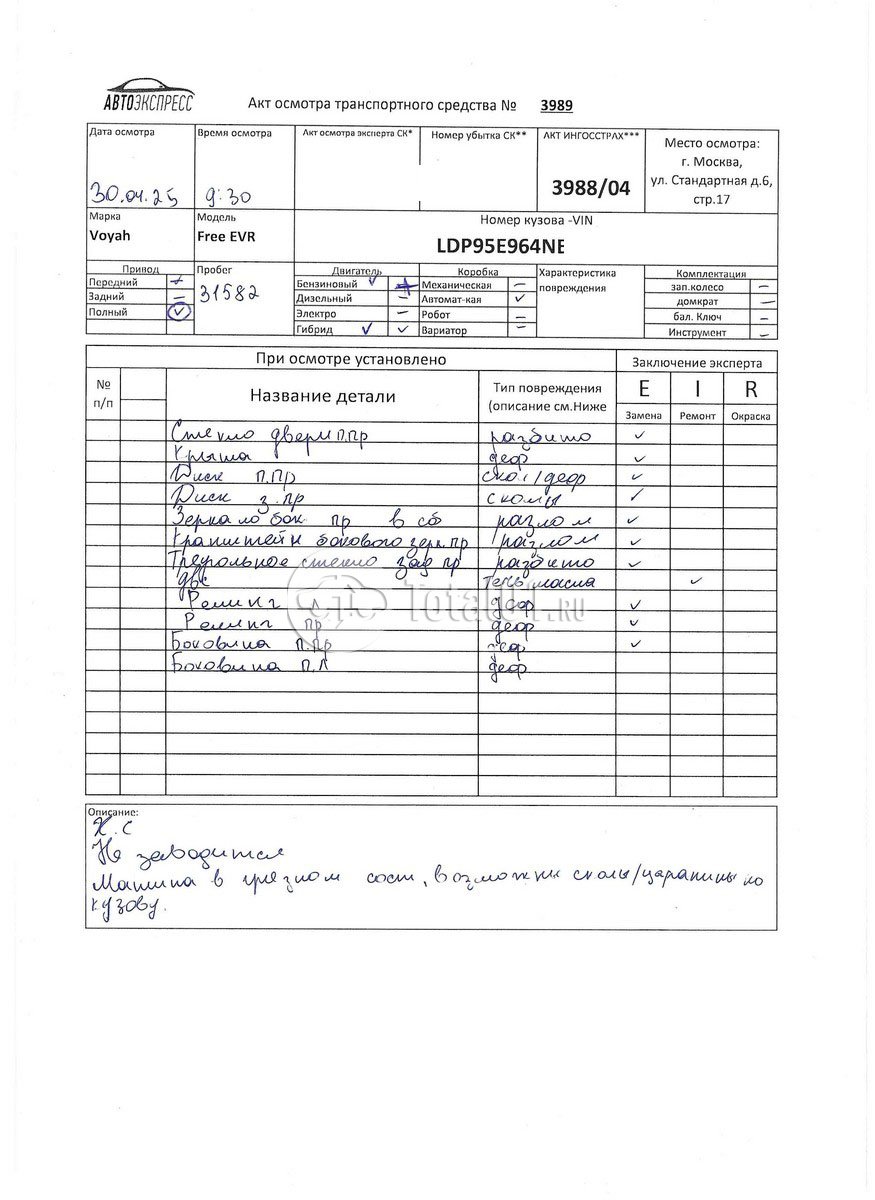 АВТОЭКСПРЕСС
Акт осмотра транспортного средства № 3989
Дата осмотра Время осмотра Акт осмотра эксперта СК* Номер убытка СК** АКТ ИНГОССТРАХ*** Место осмотра:
г. Москва,
30.04.25 9:30 3988/04 ул. Стандартная д.6,
стр.17
Марка Модель Номер кузова -VIN
Voyah Free EVR LDP95E964NE
Привод Пробег Двигатель Коробка Характеристика Комплектация
Передний 31582 Бензиновый Механическая повреждения зап.колесо
Задний Дизельный Автомат-кая домкрат
Полный Электро Робот бал. Ключ
Гибрид Вариатор Инструмент
При осмотре установлено Заключение эксперта
№ Название детали Тип повреждения E I R
п/п (описание см.Ниже Замена Ремонт Окраска
Стекло двери п.пр разбито
Крыша деф
Диск п.пр скол/деф
Диск з.пр сколы
Зеркало бок пр в сб разлом
Кранштейн бокового зерк.пр разлом
Треугольное стекло зад пр разбито
ДВС течь масла
Релинг л деф
Релинг пр деф
Боковина п.пр деф
Боковина п.л деф
Total01.RU
Описание:
Х.С
Не заводится
Машина в грязном сост, возможны сколы/царапины по
кузову.